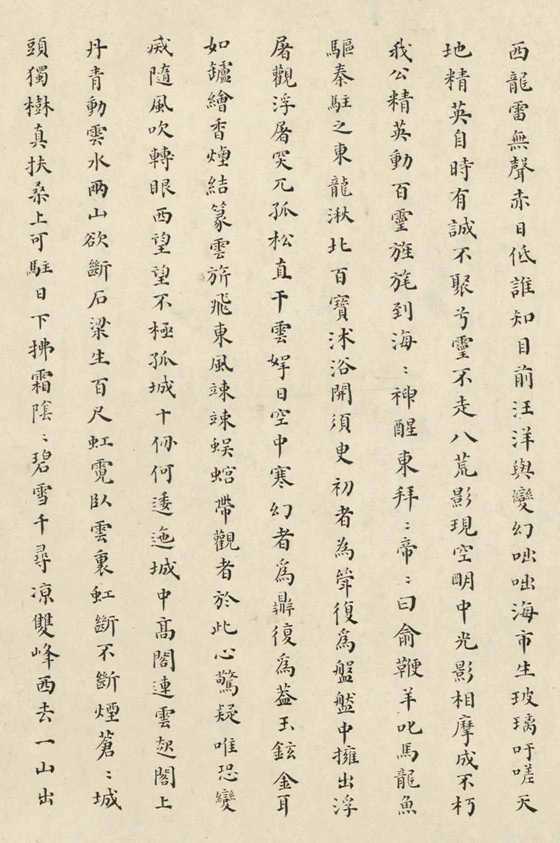 西龍雷無聲赤日低誰知目前汪洋與變幻咄咄海市生玻璃吁嗟天
地精英自時有誠不聚兮靈不走八荒影現空明中光影相摩成不朽
我公精英動百靈旌旄到海〻神醒東拜〻帝〻曰俞鞭羊叱馬龍魚
驅秦駐之東龍湫北百寶沭浴開須臾初者為聳復為盤盤中擁出浮
屠觀浮屠突兀孤松直干雲婷日空中寒幻者為鼎復為蓋玉鉉金耳
如罏繪香煙結篆雲旂飛東風竦竦蜈蜙帶觀者於此心驚疑唯恐變
烕隨風吹轉眼西望望不極孤城十仞何逶迤城中高閣連雲起閣上
丹青動雲水兩山欲斷石梁生百尺虹霓臥雲裏虹斷不斷煙蒼〻城
頭獨樹真扶桑上可駐日下拂霜陰〻碧雪千尋凉雙峰西去一山出